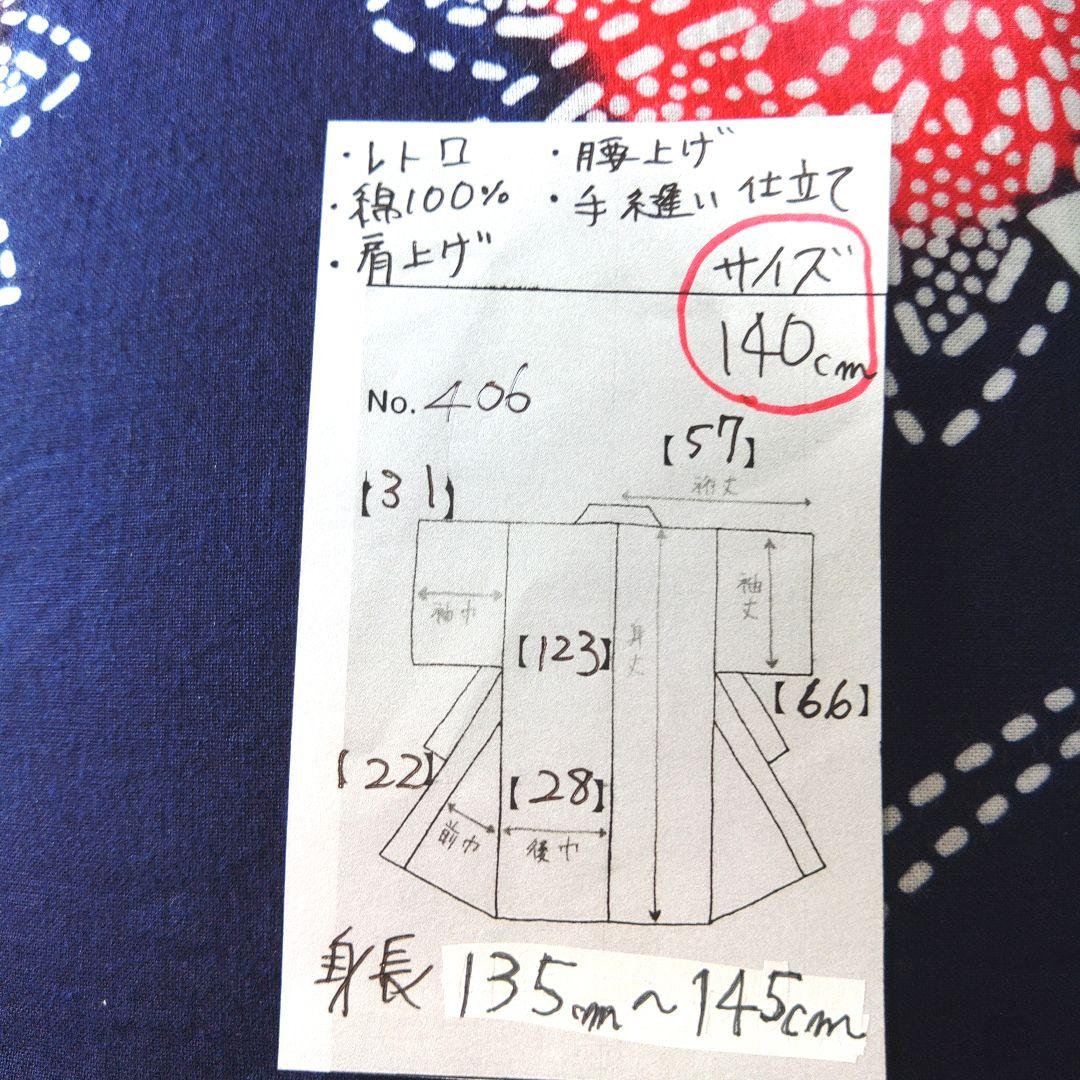 ・レトロ ・腰上げ
・綿100% ・手縫い仕立て
・肩上げ
サイズ
140cm
No. 406
【57】
裄丈
【31】
袖巾
袖丈
【123】
身丈
【66】
【22】
【28】
前巾
後巾
身長 135cm~145cm